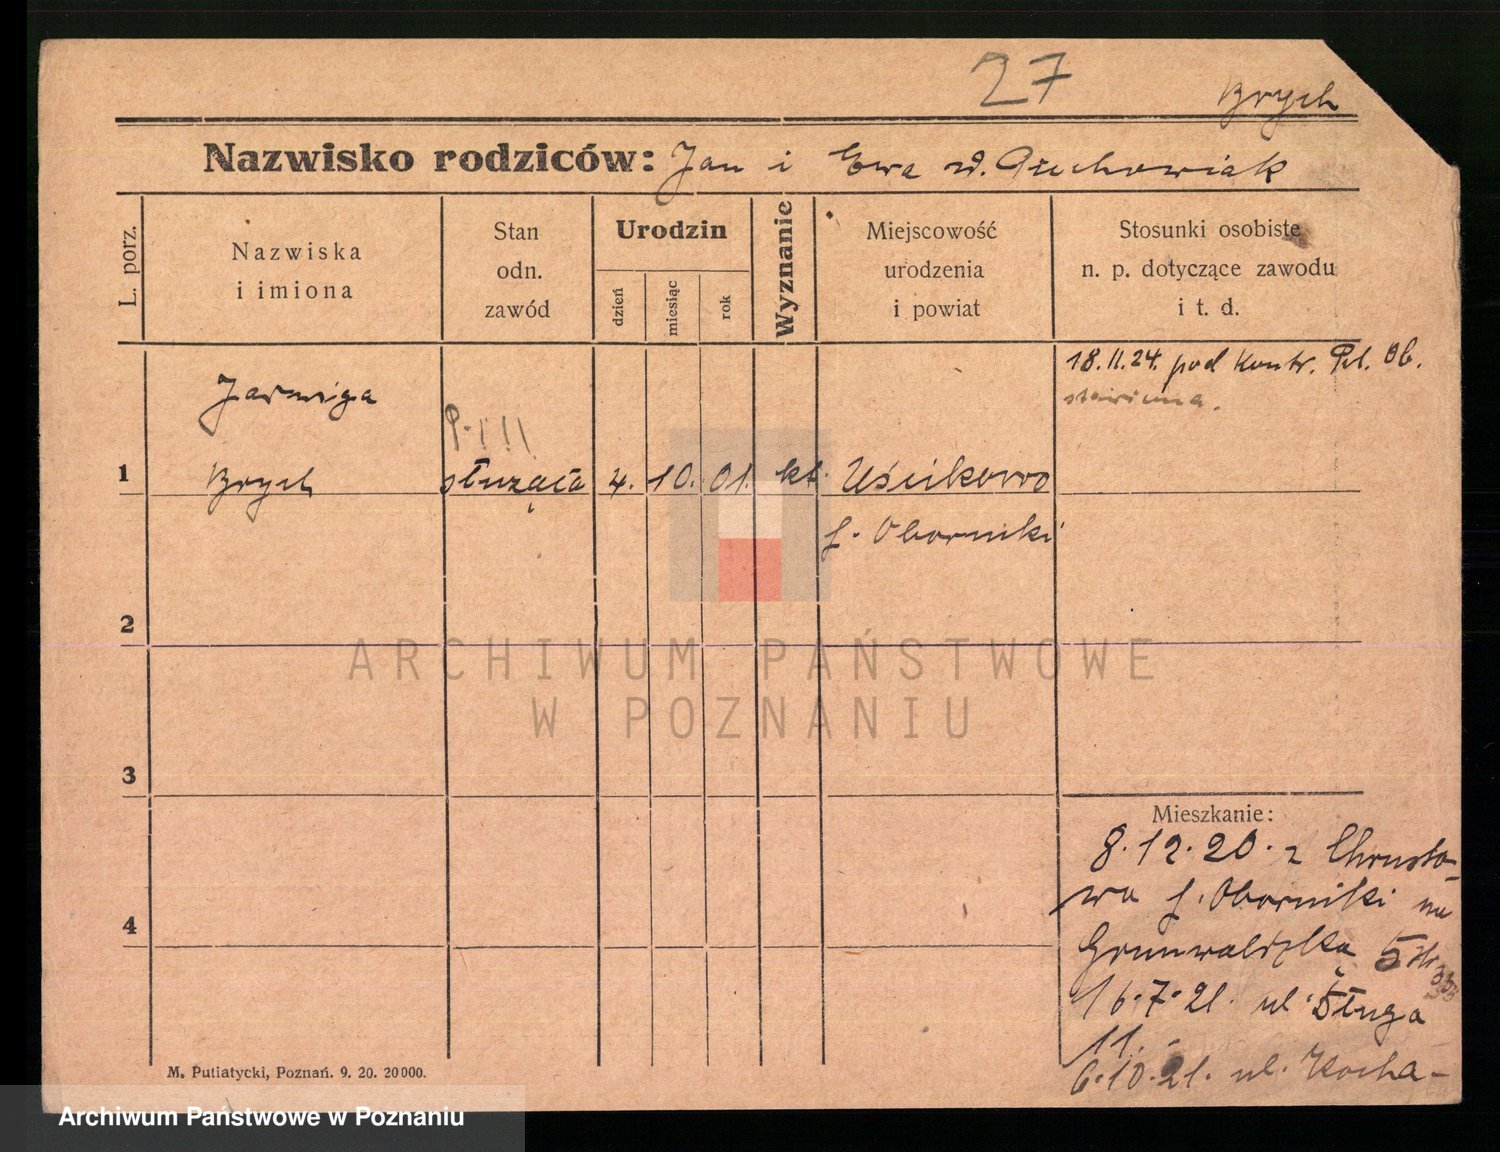 27
Brych
Nazwisko rodziców: Jan i Ewa
L. porz.
Nazwiska
i imiona
Stan
odn.
zawód
Urodzin
dzień
miesiąc
rok
Wyznanie
Miejscowość
urodzenia
i powiat
Stosunki osobiste
n. p. dotyczące zawodu
i t. d.
18.11.24. pod Kontr. Ob.
Jadwiga
1 Brych służąca 4. 10. 01. kt. Uścikowo
Oborniki
2
3
4
Mieszkanie:
8.12.20. z Chrusto-
wa Oborniki na
Grunwaldzka 5
16.7.21. ul. Długa
11.
6.10.21. ul. Kocha-
M. Putiatycki, Poznań. 9. 20. 20000.
ARCHIWUM PAŃSTWOWE
W POZNANIU
Archiwum Państwowe w Poznaniu